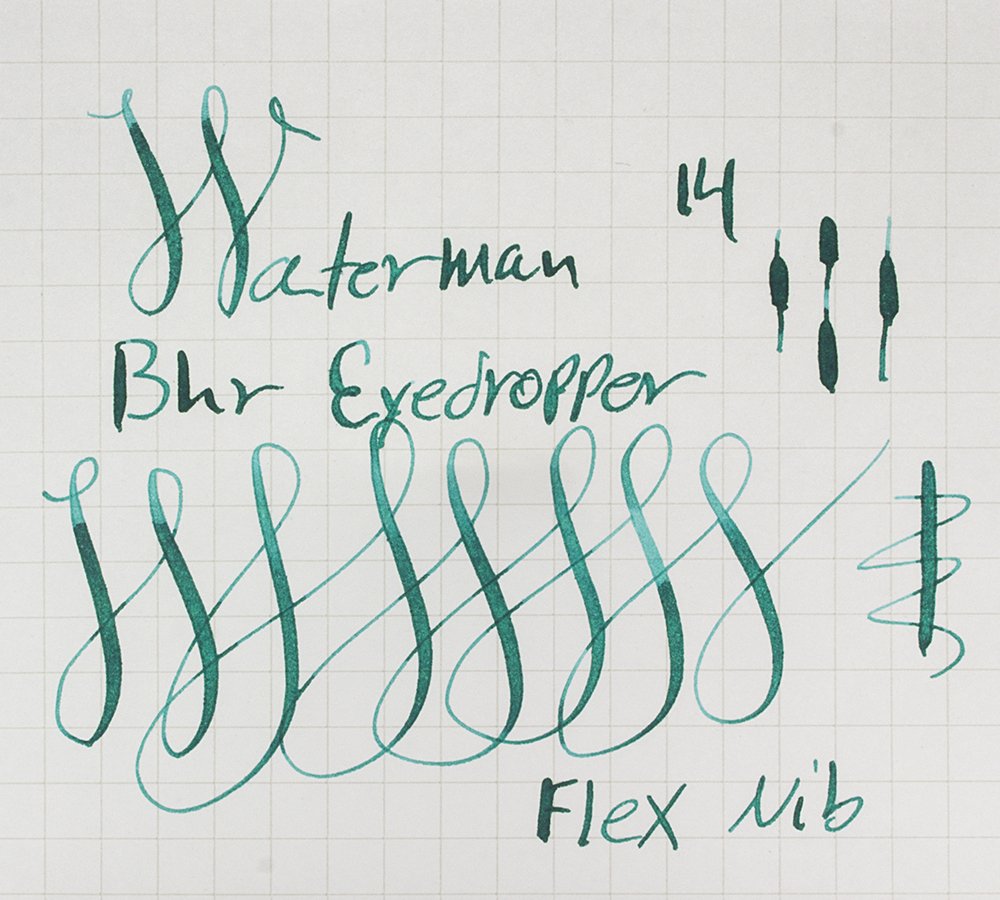 Waterman 14
Bhr Eyedropper
Flex Nib